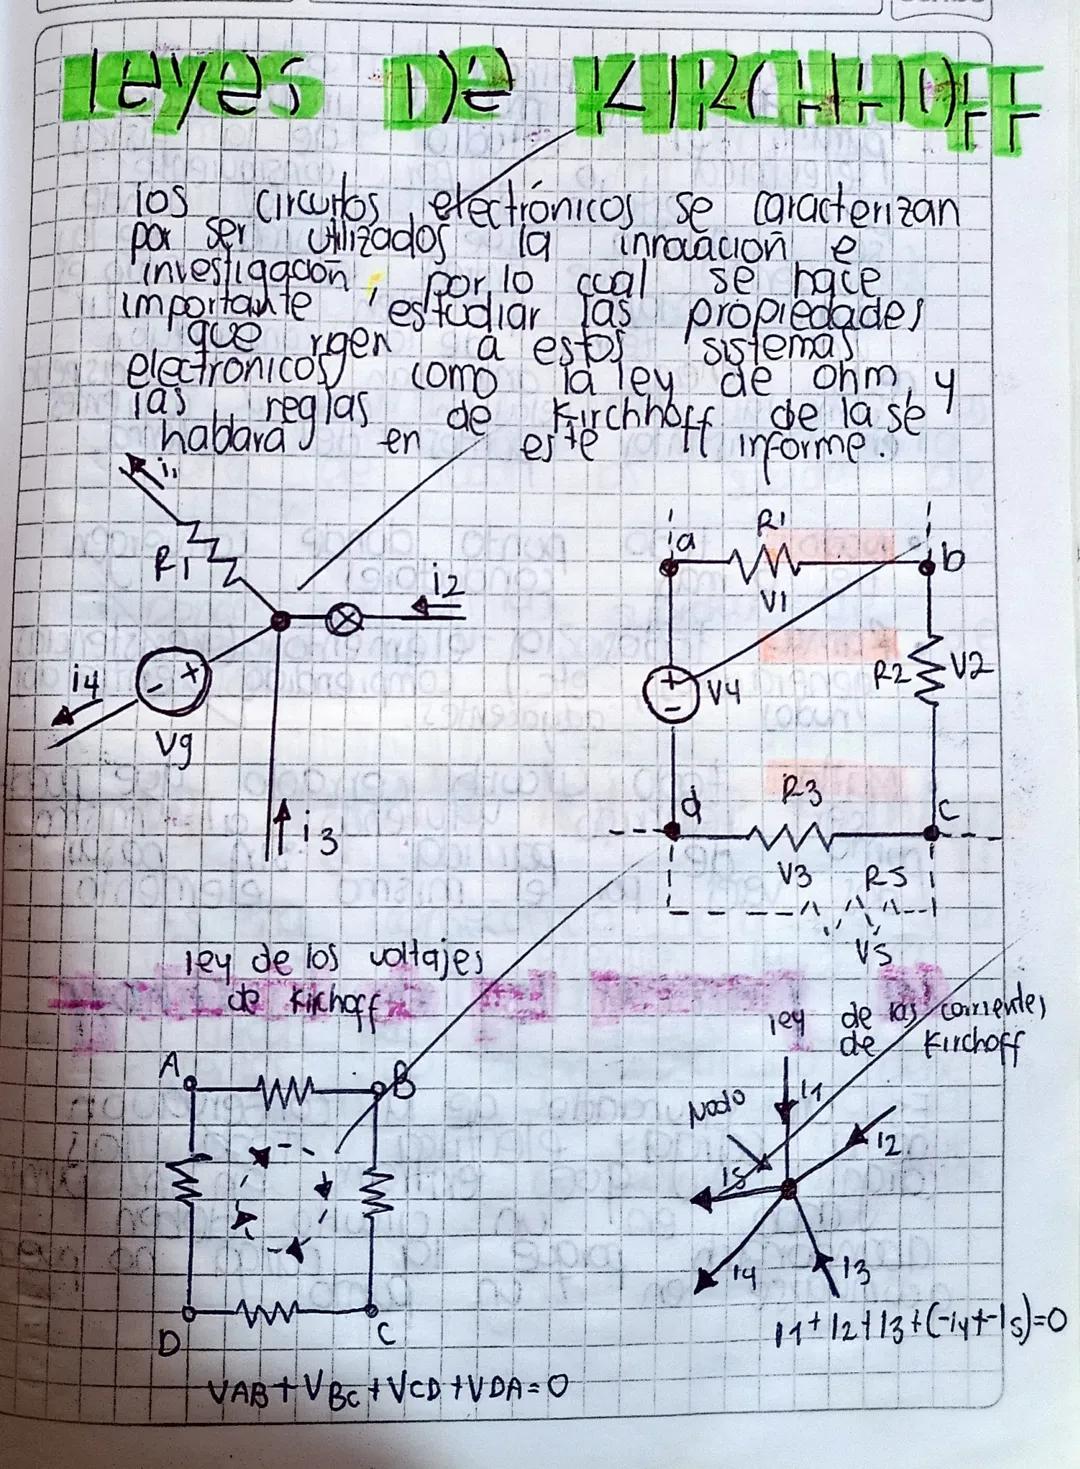 leyes De KIRCHHOFF
los circuitos electrónicos se caracterizan
por ser utilizados la innovación e
investigación, por lo cual se hace
importante, estudiar las propiedades
que rigen a estos sistemas
electronicos como la ley de ohm, y
las reglas de Kirchhoff de la se
hablara en este informe.
i1
R1
i2
i4
Vg
i3
a
R1
b
V1
V4
R2
V2
d
R3
c
V3
R5
V5
ley de los voltajes
de Kichoff
ley de las corrientes
de Kirchoff
A
B
D
C
VAB + VBC + VCD + VDA = 0
Nodo
I1
I2
I5
I4
I3
I1 + I2 + I3 + (-I4 + -I5) = 0